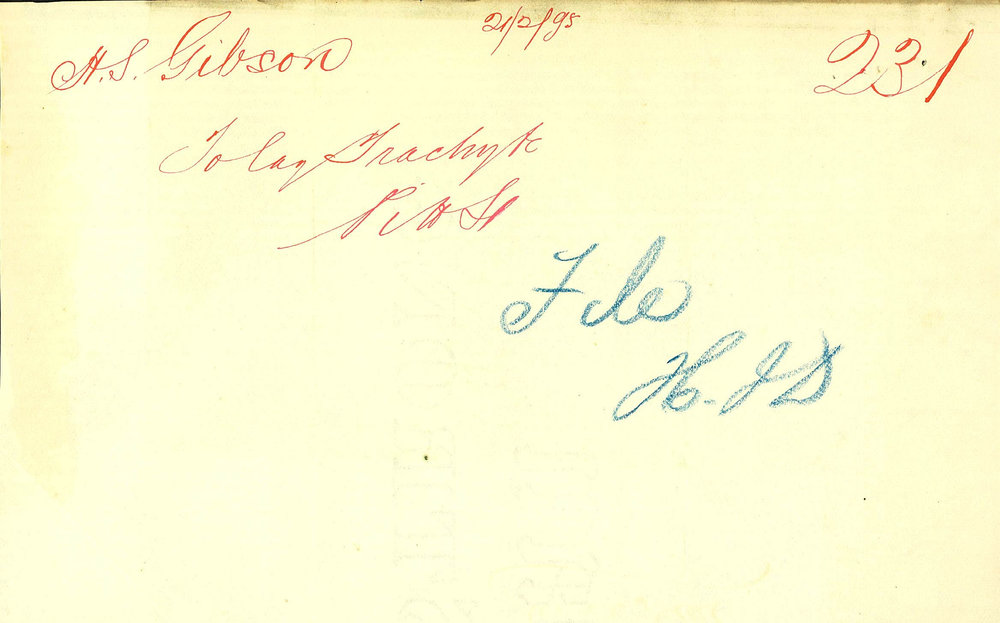 H.S. Gibson
21/2/95
231
Tolag Trachyte
File
H.J.D